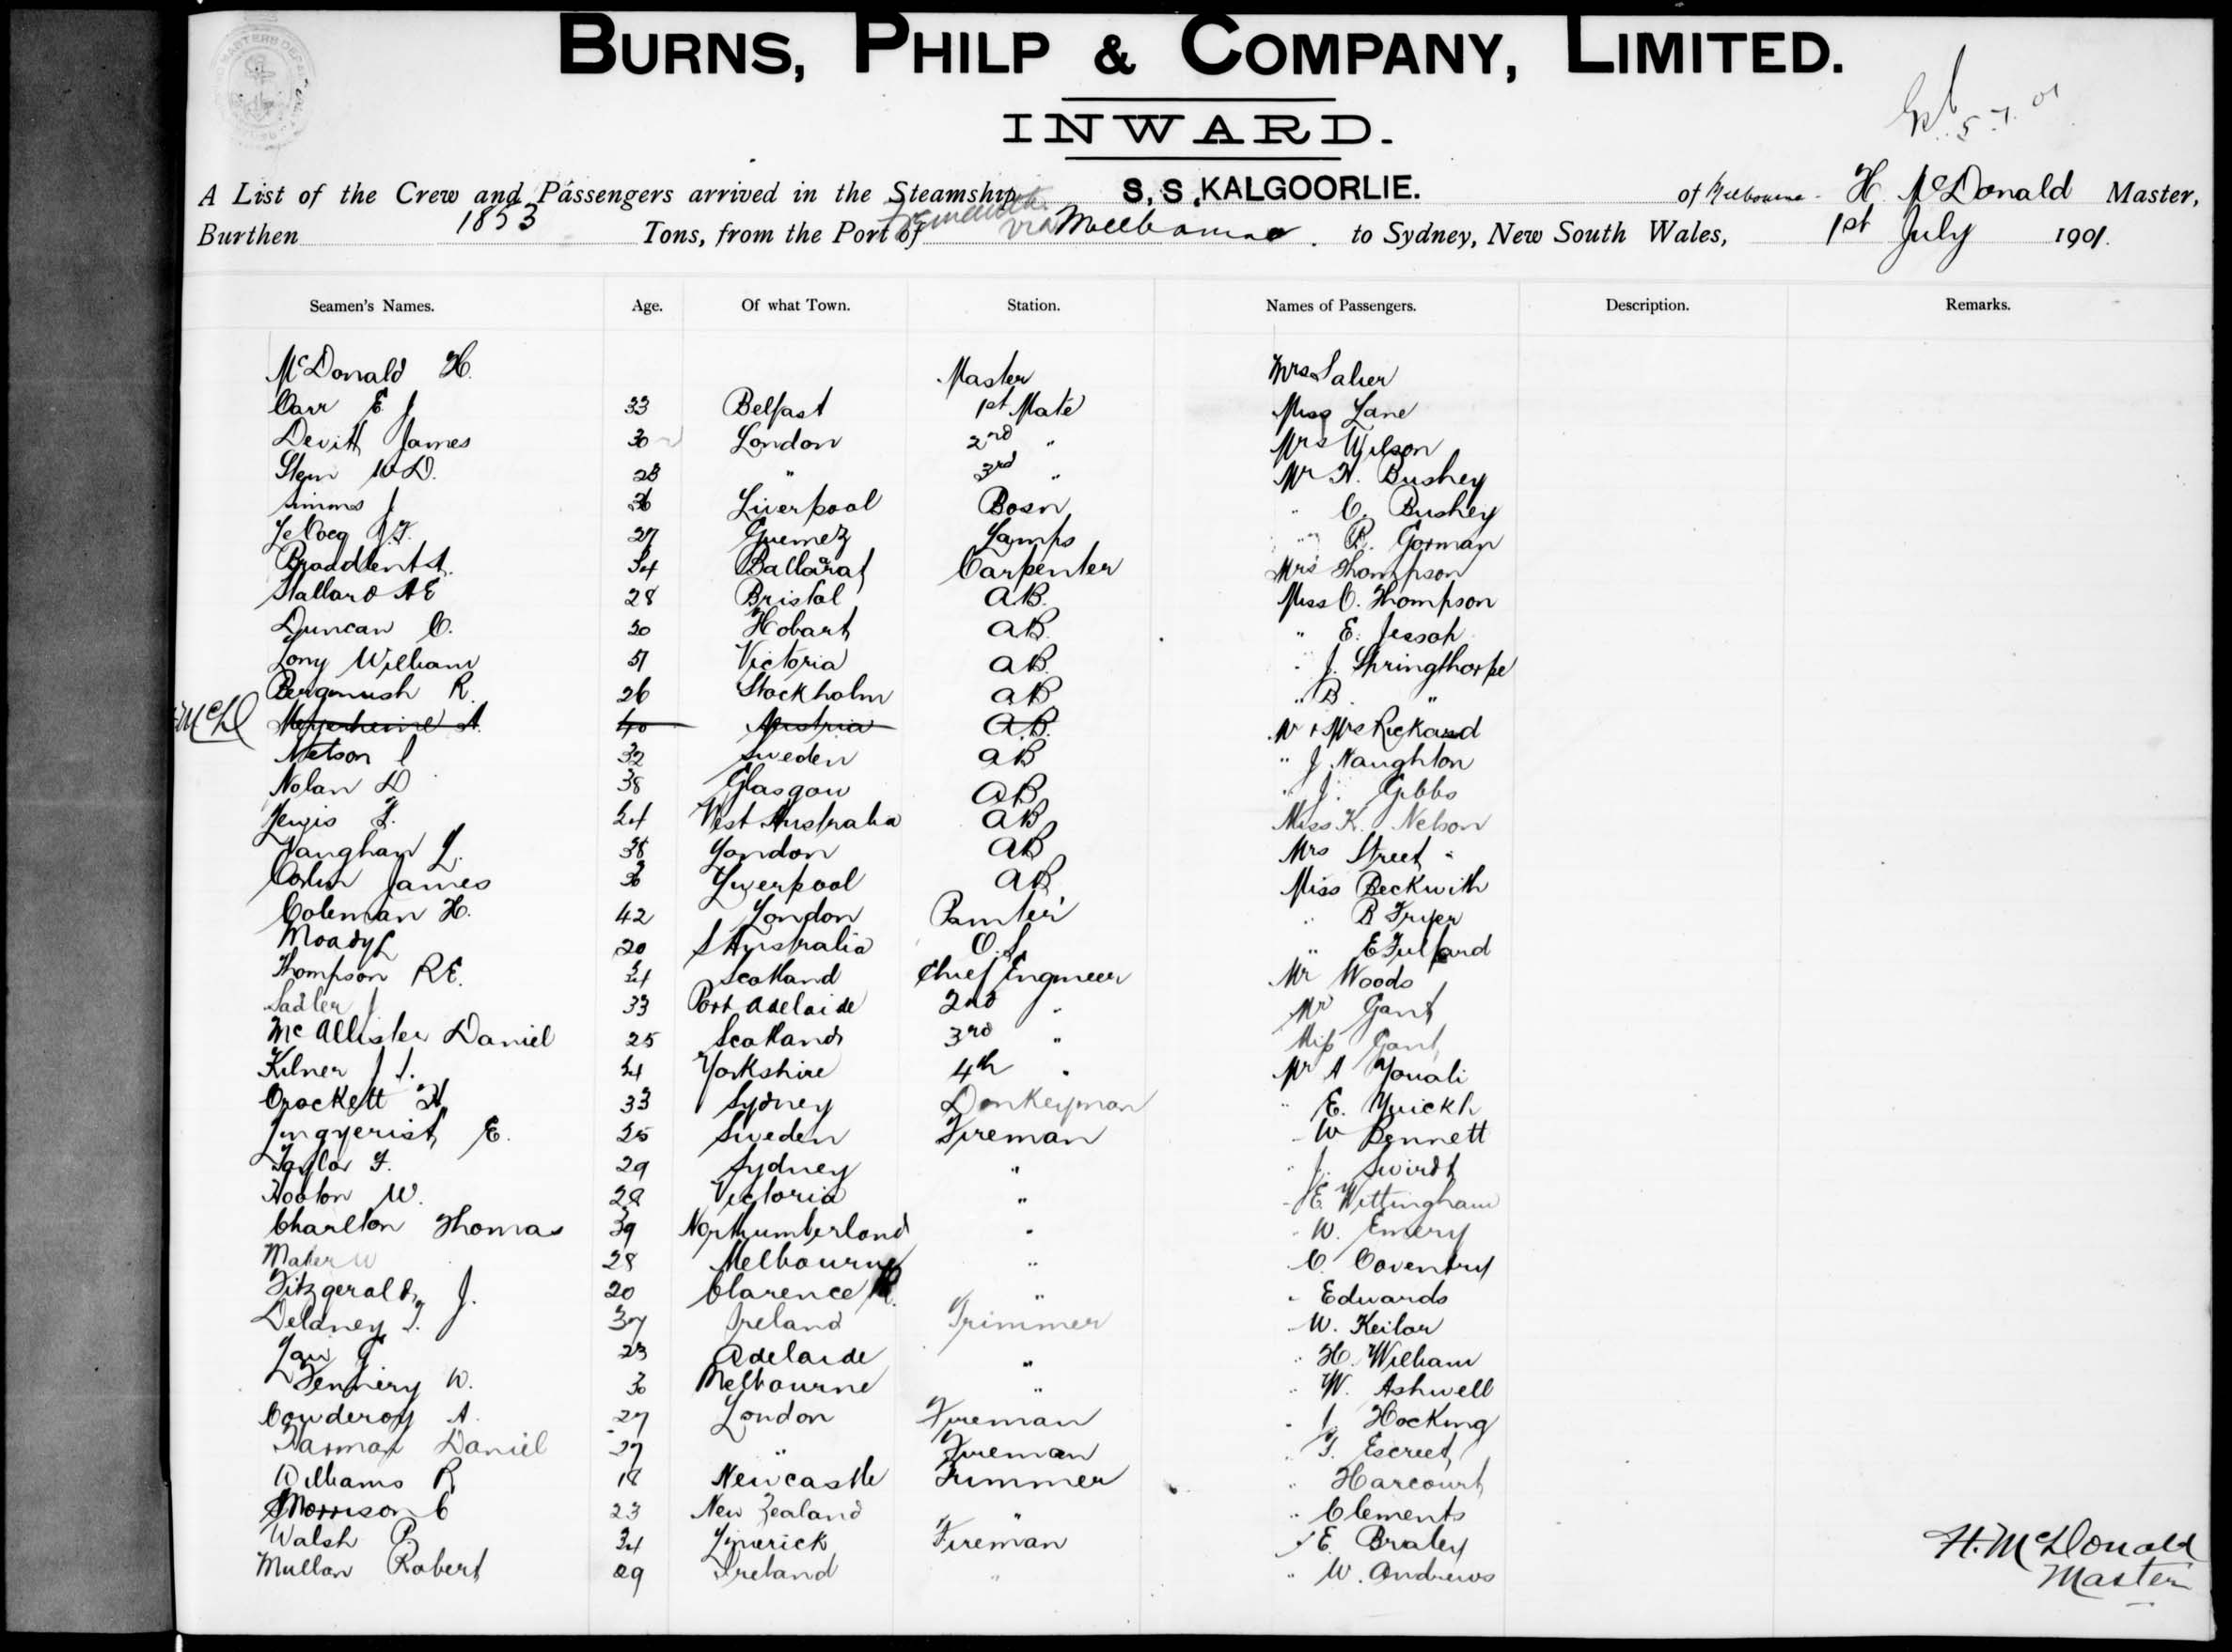 BURNS, PHILP & COMPANY, LIMITED.
INWARD.
5.7.01
A List of the Crew and Passengers arrived in the Steamship S.S. KALGOORLIE. of Melbourne H. McDonald Master,
Burthen 1853 Tons, from the Port of Fremantle via Melbourne to Sydney, New South Wales, 1st July 1901.
Seamen's Names. Age. Of what Town. Station. Names of Passengers. Description. Remarks.
McDonald H. Master Mrs Saher
Carr E J 33 Belfast 1st Mate Miss Lane
Devitt James 30 London 2nd " Mrs Wilson
W D. 28 " 3rd " Mr H. Bushey
Simms J 36 Liverpool Bosn " C. Bushey
Le Cocq J.F. 27 Lamps " R. Gorman
Broadbent A. 34 Ballarat Carpenter Mrs Thompson
Stallard A E 28 Bristol AB. Miss C. Thompson
Duncan C. 30 Hobart AB. " E. Jessop
Long William 51 Victoria AB. " J. Springthorpe
R. 26 Stockholm AB " B. "
McD 40 Austria A.B. Mr & Mrs Rickard
Nelson 32 Sweden AB " J Naughton
Nolan D 38 Glasgow AB " J. Gibbs
24 West Australia AB Miss K. Nelson
Vaughan L. 38 London AB Mrs Street
James 30 Liverpool AB Miss Beckwith
Coleman H. 42 London " B Fryer
Moady 20 S Australia O.S. " E Fulford
Thompson R E. 34 Scotland Chief Engineer Mr Woods
Sadler J 33 Port Adelaide 2nd " Mr Gant
McAllister Daniel 25 Scotland 3rd " Miss Gant
Kilner J. 24 Yorkshire 4th " Mr A
Crockett H. 33 Sydney Donkeyman " E.
E. 25 Sweden Fireman " W Bennett
Taylor F. 29 Sydney " " J.
Hooton W. 28 Victoria " " E. Wittingham
Charlton Thomas 39 Northumberland " " W. Emery
Maher W 28 Melbourne " " C. Coventry
Fitzgerald J. 20 Clarence R. " " Edwards
Delaney J. 37 Ireland Trimmer " W. Keilar
23 Adelaide " " H. William
W. 30 Melbourne " " W. Ashwell
Cowderoy A. 27 London Fireman " J. Hocking
Daniel 27 " Fireman " T. Escreet
Williams R. 18 Newcastle Trimmer " Harcourt
Morrison C 23 New Zealand " " Clements
Walsh P. 34 Limerick Fireman " E. Braley
Mullan Robert 29 Ireland " " W. Andrews
H. McDonald
Master